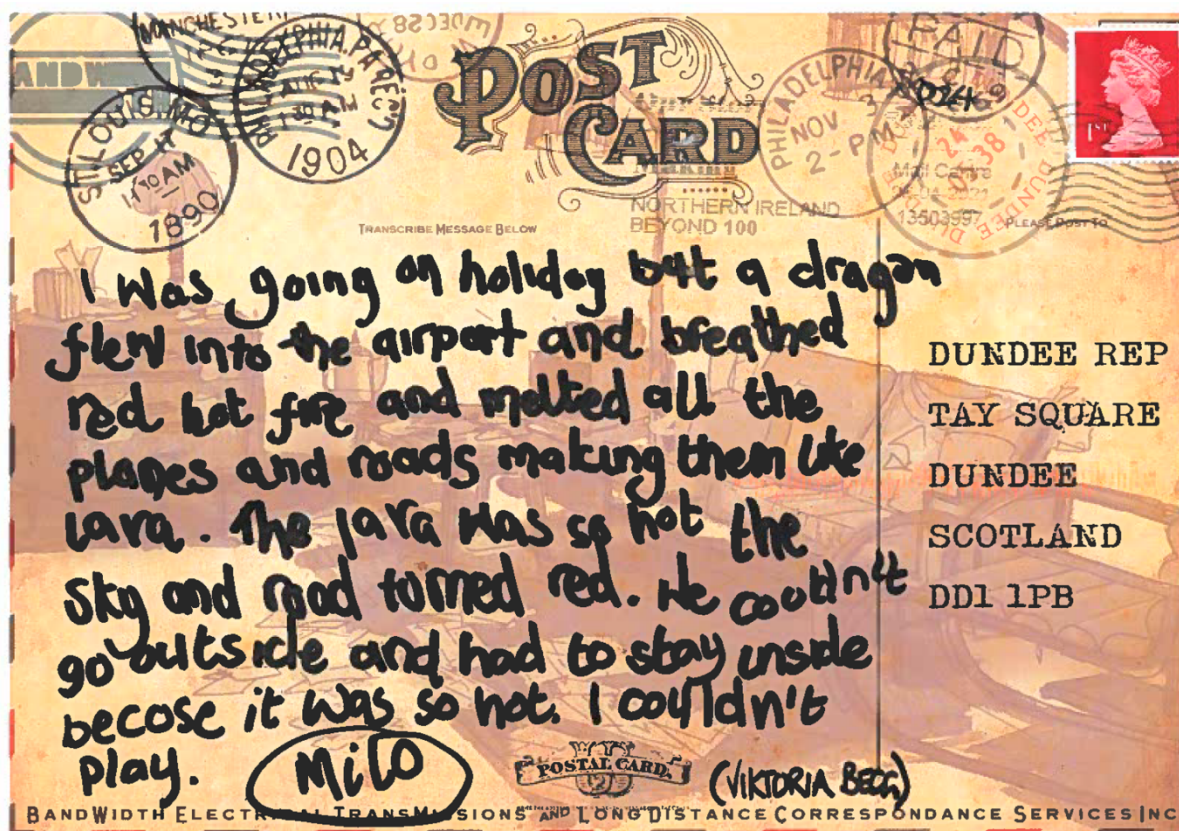 MANCHESTER
BANDWIDTH
ST. LOUIS, MO.
SEP 17
11 30 AM
1890
PHILADELPHIA, PA.
1904
POST
CARD
PHILADELPHIA
NOV
2 - PM
PAID
1ST
DUNDEE DUNDEE
24
38
Mail Centre
13503997
NORTHERN IRELAND
BEYOND 100
TRANSCRIBE MESSAGE BELOW
PLEASE POST TO
I was going on holiday but a dragon
flew into the airport and breathed
red hot fire and melted all the
planes and roads making them like
lava. The lava was so hot the
sky and road turned red. We couldn't
go outside and had to stay inside
becose it was so hot. I couldn't
play.
Milo
(VIKTORIA BEGG)
DUNDEE REP
TAY SQUARE
DUNDEE
SCOTLAND
DD1 1PB
POSTAL CARD.
BANDWIDTH ELECTRICAL TRANSMISSIONS AND LONG DISTANCE CORRESPONDANCE SERVICES INC